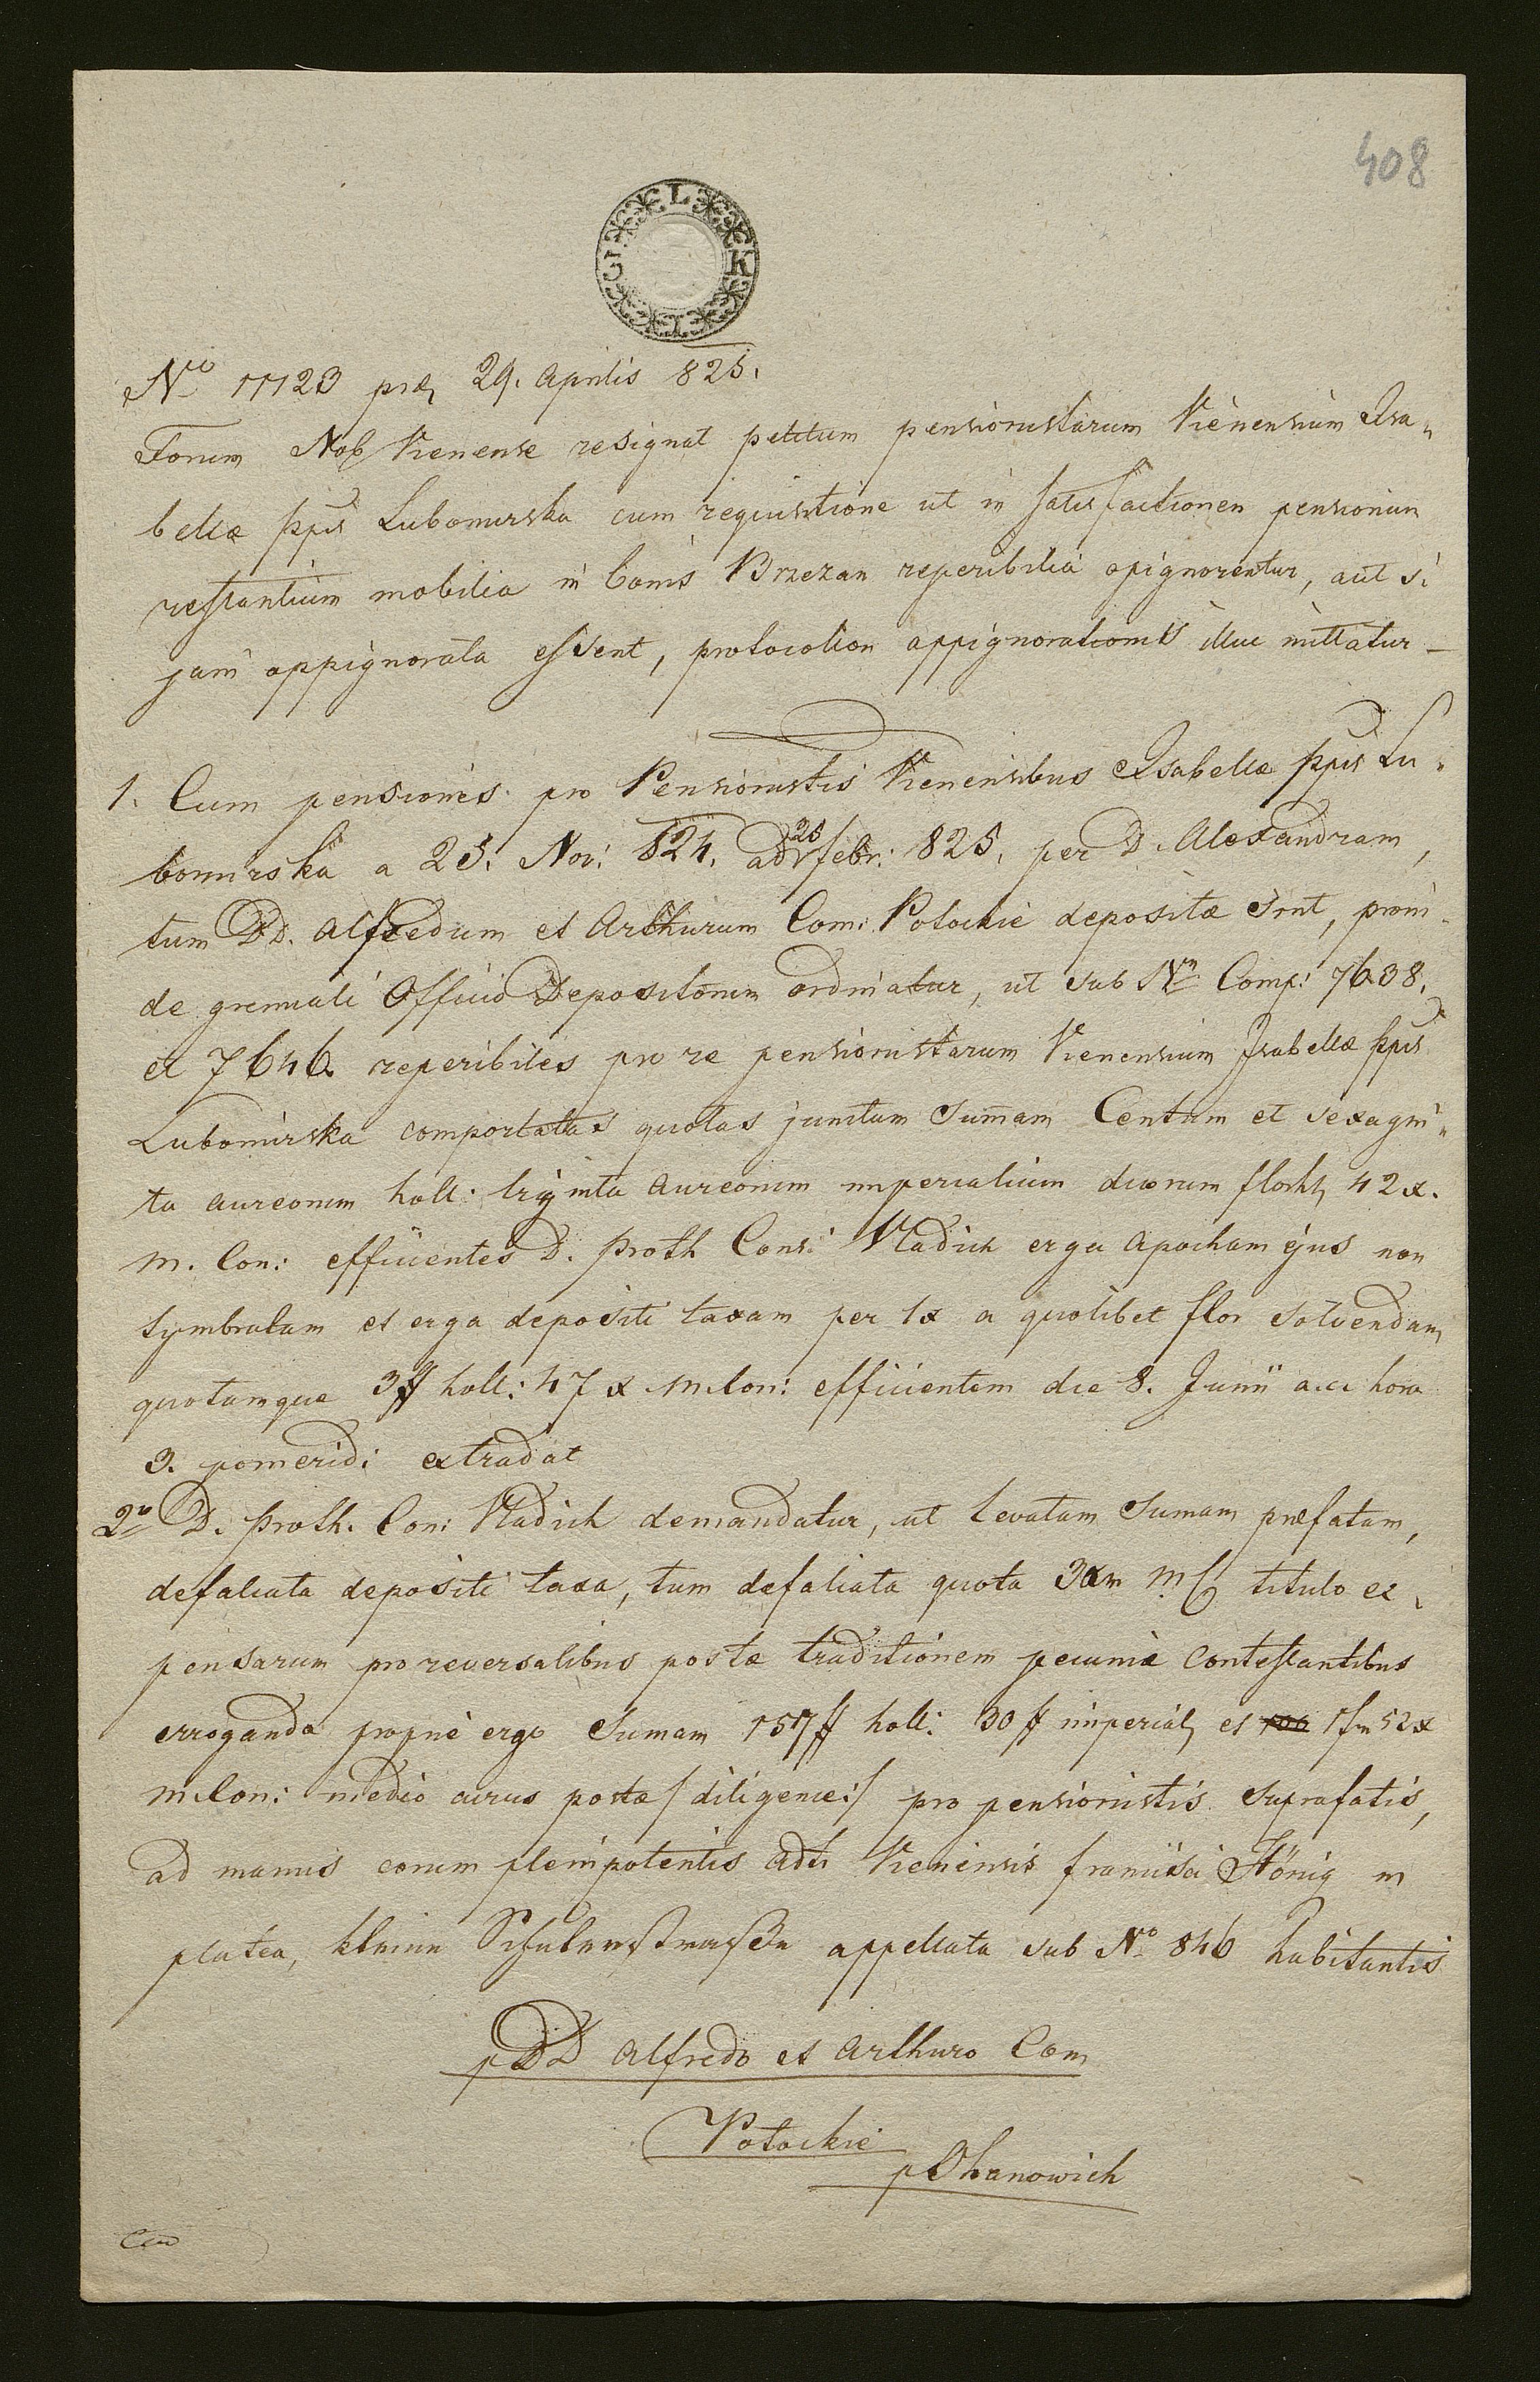 408
L K I 3
No 11123 præs 29. Aprilis 825.
Forum Nob Vienense resignat petitum pensionistarum Vienensium Isa„
bellæ ppis Lubomirska cum requisitione ut in satisfactionem pensionum
restantium mobilia in bonis Brzezan reperibilia opignorentur, aut si
jam oppignorata essent, protocollon oppignorationis illuc mittatur –
1. Cum pensiones pro Pensionistis Vienensibus Isabellæ ppis Lu„
bomirska a 25. Nov: 824. ad 25 febr: 825. per D. Alexandram,
tum DD. Alfredum et Arthurum Com: Potockie depositæ sint, proin„
de gremiali Officio Depositorum ordinatur, ut sub No Comp: 7638.
et 7646. reperibiles pro re pensionistarum Vienensium Isabellæ ppis
Lubomirska comportatas quotas junctum Sumam Centum et sexagin„
ta aureorum holl: triginta aureorum imperialium duorum flor 42 x.
m. Con: efficientes D. Proth Cons: Vladich erga apocham ejus non
symbratam et erga depositi taxam per 1x a quolibet flor solvendam
quotamque 3 # holl: 47 x m.Con: efficientem die 8. Junii a.c. hora
3. pomerid: extradat
2o D. Proth. Con: Vladich demandatur, ut levatam Sumam præfatam,
defalcata depositi taxa, tum defalcata quota 3xm MC titulo ex„
pensarum pro reversalibus postæ traditionem pecuniæ contestantibus
erroganda propriè ergo Sumam 157 # holl: 30 # imperial et 1 fr 52 x
m.Con: medio currus postæ /:diligence:/ pro pensionistis suprafatis,
ad manus eorum plenipotentis adti Vienensis francisci Hönig in
platea, kleine Schulerstrasse appellata sub No 846 habitantis
p DD Alfredo et Arthuro Com
Potockie
p Ohanowich